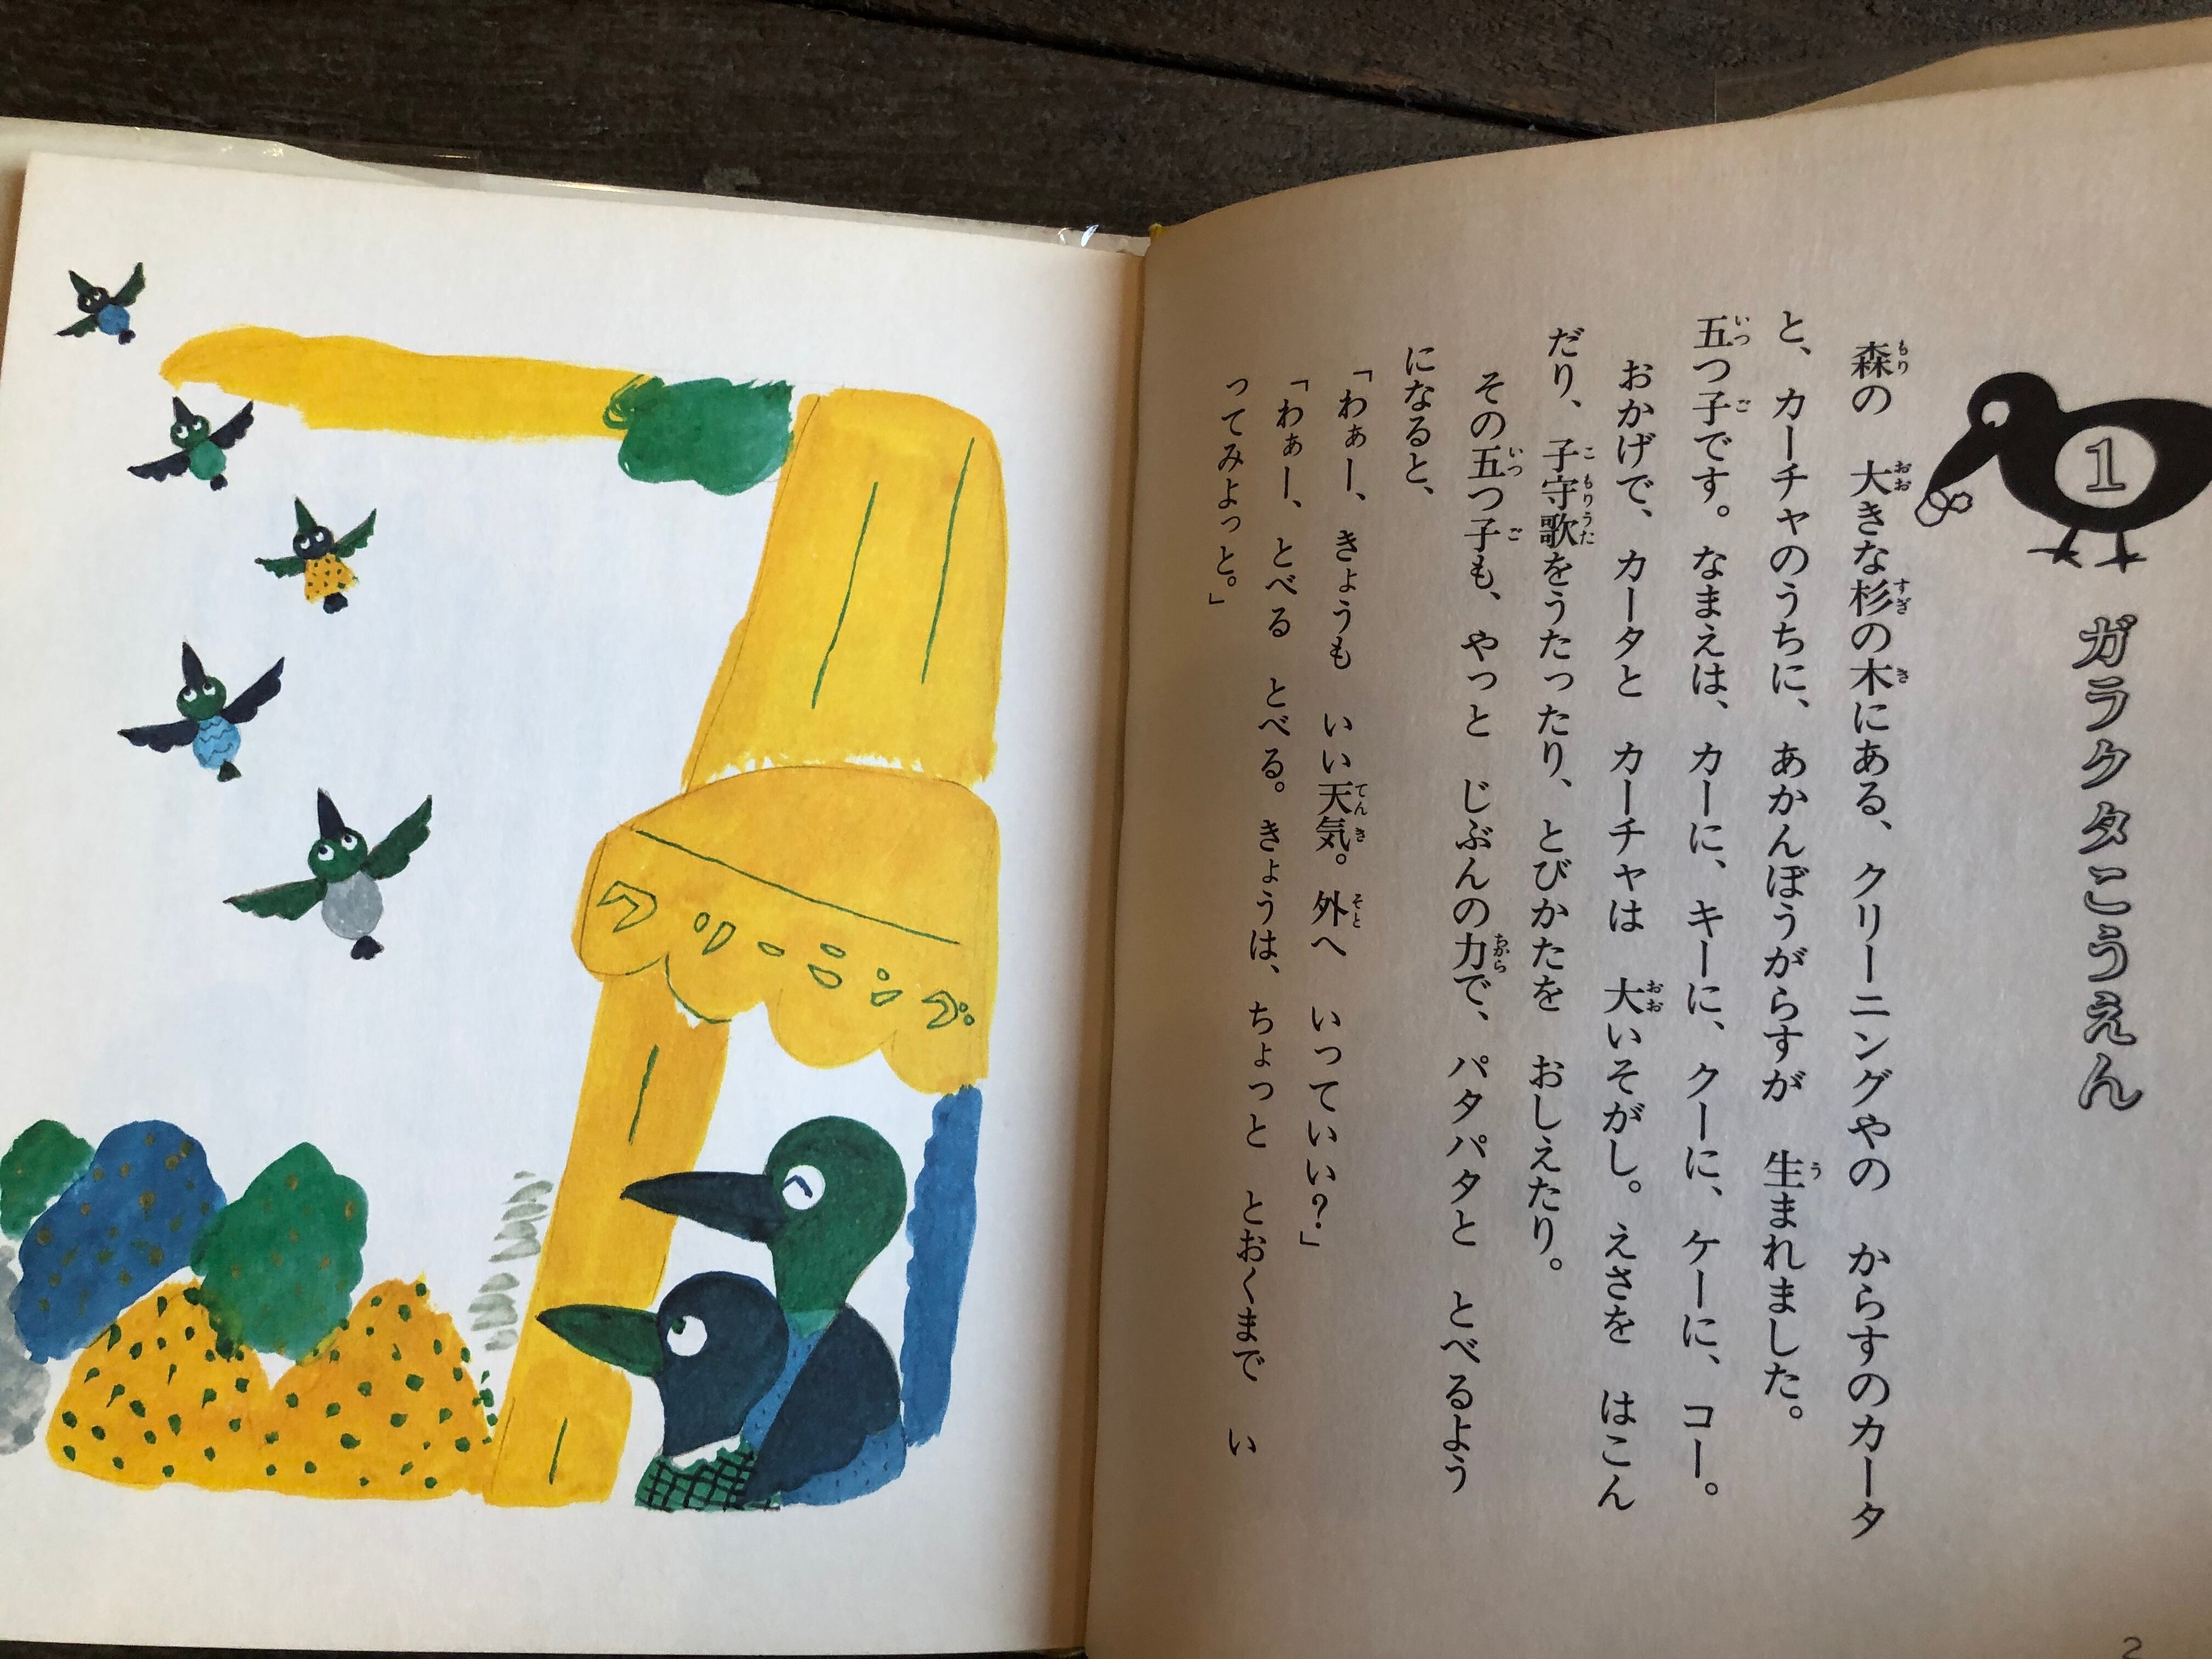 1
ガラクタこうえん
森の　大きな杉の木にある、クリーニングやの　からすのカータ
と、カーチャのうちに、あかんぼうがらすが　生まれました。
五つ子です。なまえは、カーに、キーに、クーに、ケーに、コー。
おかげで、カータと　カーチャは　大いそがし。えさを　はこん
だり、子守歌をうたったり、とびかたを　おしえたり。
その五つ子も、やっと　じぶんの力で、パタパタと　とべるよう
になると、
「わぁー、きょうも　いい天気。外へ　いっていい？」
「わぁー、とべる　とべる。きょうは、ちょっと　とおくまで　い
ってみよっと。」
2
クリーニング